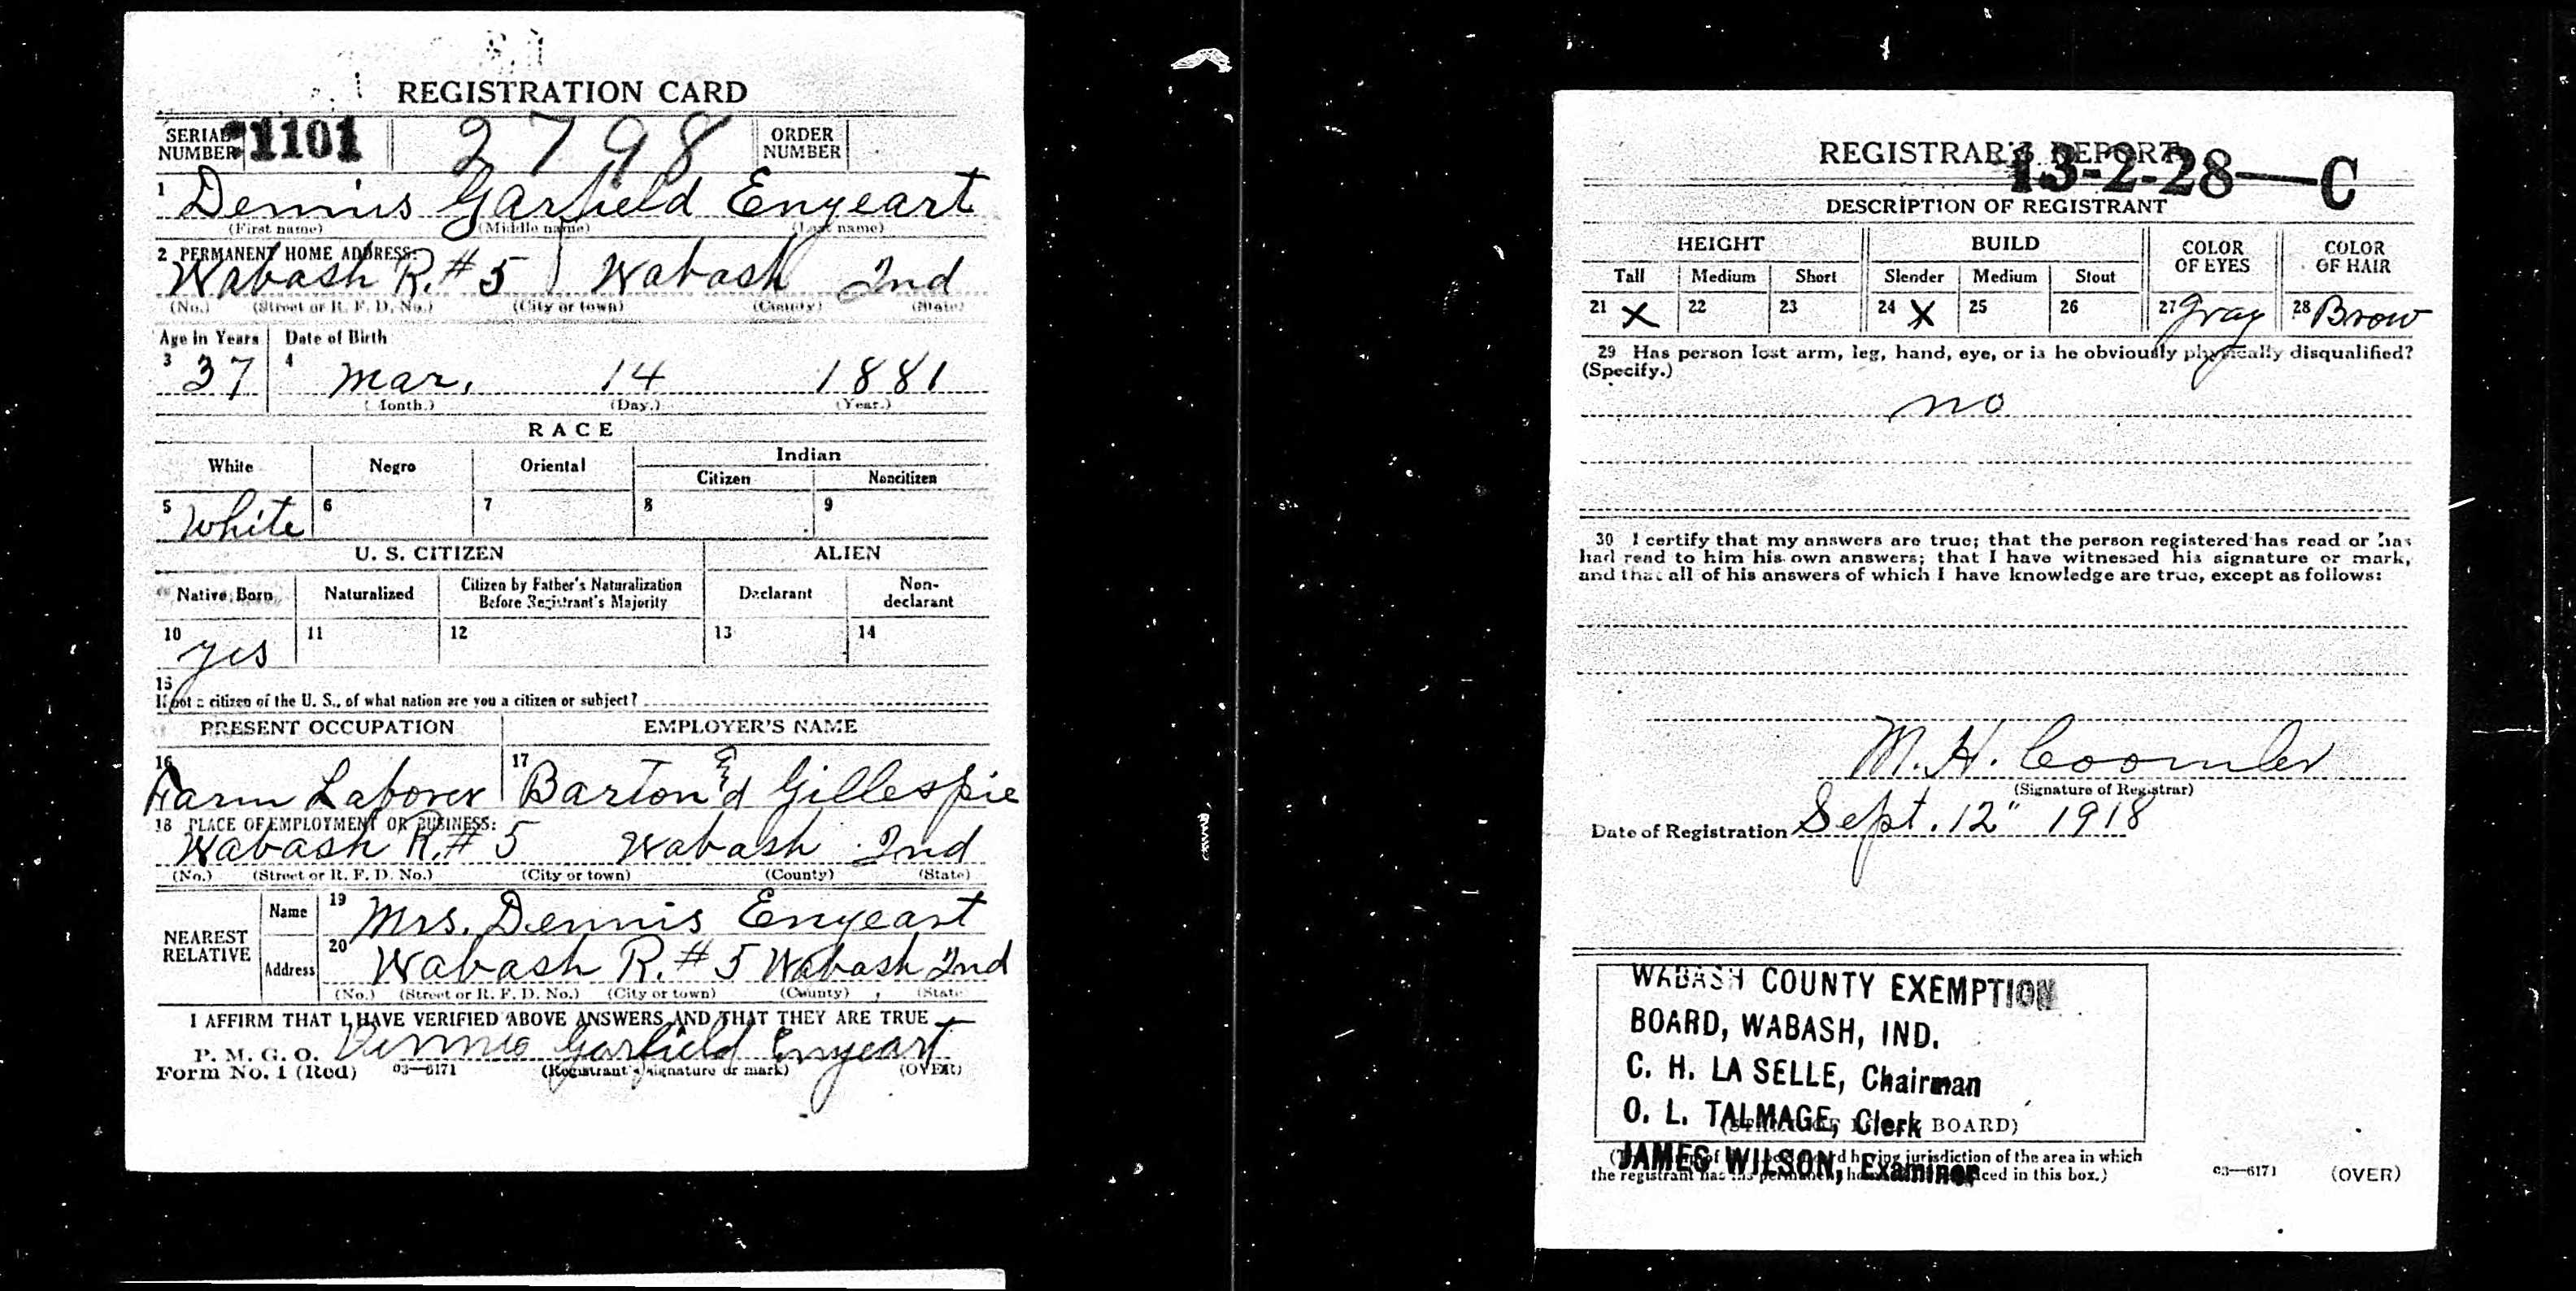 REGISTRATION CARD
SERIAL NUMBER 1101 2798 ORDER NUMBER
1 Dennis Garfield Enyeart
(First name) (Middle name) (Last name)
2 PERMANENT HOME ADDRESS:
Wabash R. # 5 Wabash Ind
(No.) (Street or R. F. D. No.) (City or town) (County) (State)
Age in Years Date of Birth
3 37 4 Mar. 14 1881
(Month.) (Day.) (Year.)
RACE
White Negro Oriental Indian
Citizen Noncitizen
5 White 6 7 8 9
U. S. CITIZEN ALIEN
Native Born Naturalized Citizen by Father's Naturalization Before Registrant's Majority Declarant Non-declarant
10 yes 11 12 13 14
15
If not a citizen of the U. S., of what nation are you a citizen or subject?
PRESENT OCCUPATION EMPLOYER'S NAME
16 Farm Laborer 17 Barton Gillespie
18 PLACE OF EMPLOYMENT OR BUSINESS:
Wabash R. # 5 Wabash Ind
(No.) (Street or R. F. D. No.) (City or town) (County) (State)
NEAREST RELATIVE
Name 19 Mrs. Dennis Enyeart
Address 20 Wabash R. # 5 Wabash Ind
(No.) (Street or R. F. D. No.) (City or town) (County) (State
I AFFIRM THAT I HAVE VERIFIED ABOVE ANSWERS AND THAT THEY ARE TRUE
P. M. G. O. Dennis Garfield Enyeart
Form No. 1 (Red) 03—6171 (Registrant's signature or mark) (OVER)
REGISTRAR'S REPORT
13-2-28—C
DESCRIPTION OF REGISTRANT
HEIGHT BUILD COLOR OF EYES COLOR OF HAIR
Tall Medium Short Slender Medium Stout
21 X 22 23 24 X 25 26 27 Gray 28 Brow
29 Has person lost arm, leg, hand, eye, or is he obviously physically disqualified?
(Specify.)
no
30 I certify that my answers are true; that the person registered has read or has
had read to him his own answers; that I have witnessed his signature or mark,
and that all of his answers of which I have knowledge are true, except as follows:
M. H. Coomler
(Signature of Registrar)
Date of Registration Sept. 12" 1918
WABASH COUNTY EXEMPTION
BOARD, WABASH, IND.
C. H. LA SELLE, Chairman
O. L. TALMAGE, Clerk
BOARD)
JAMES WILSON, Examiner
having jurisdiction of the area in which
the registrant has his permanent home placed in this box.)
03—6171 (OVER)